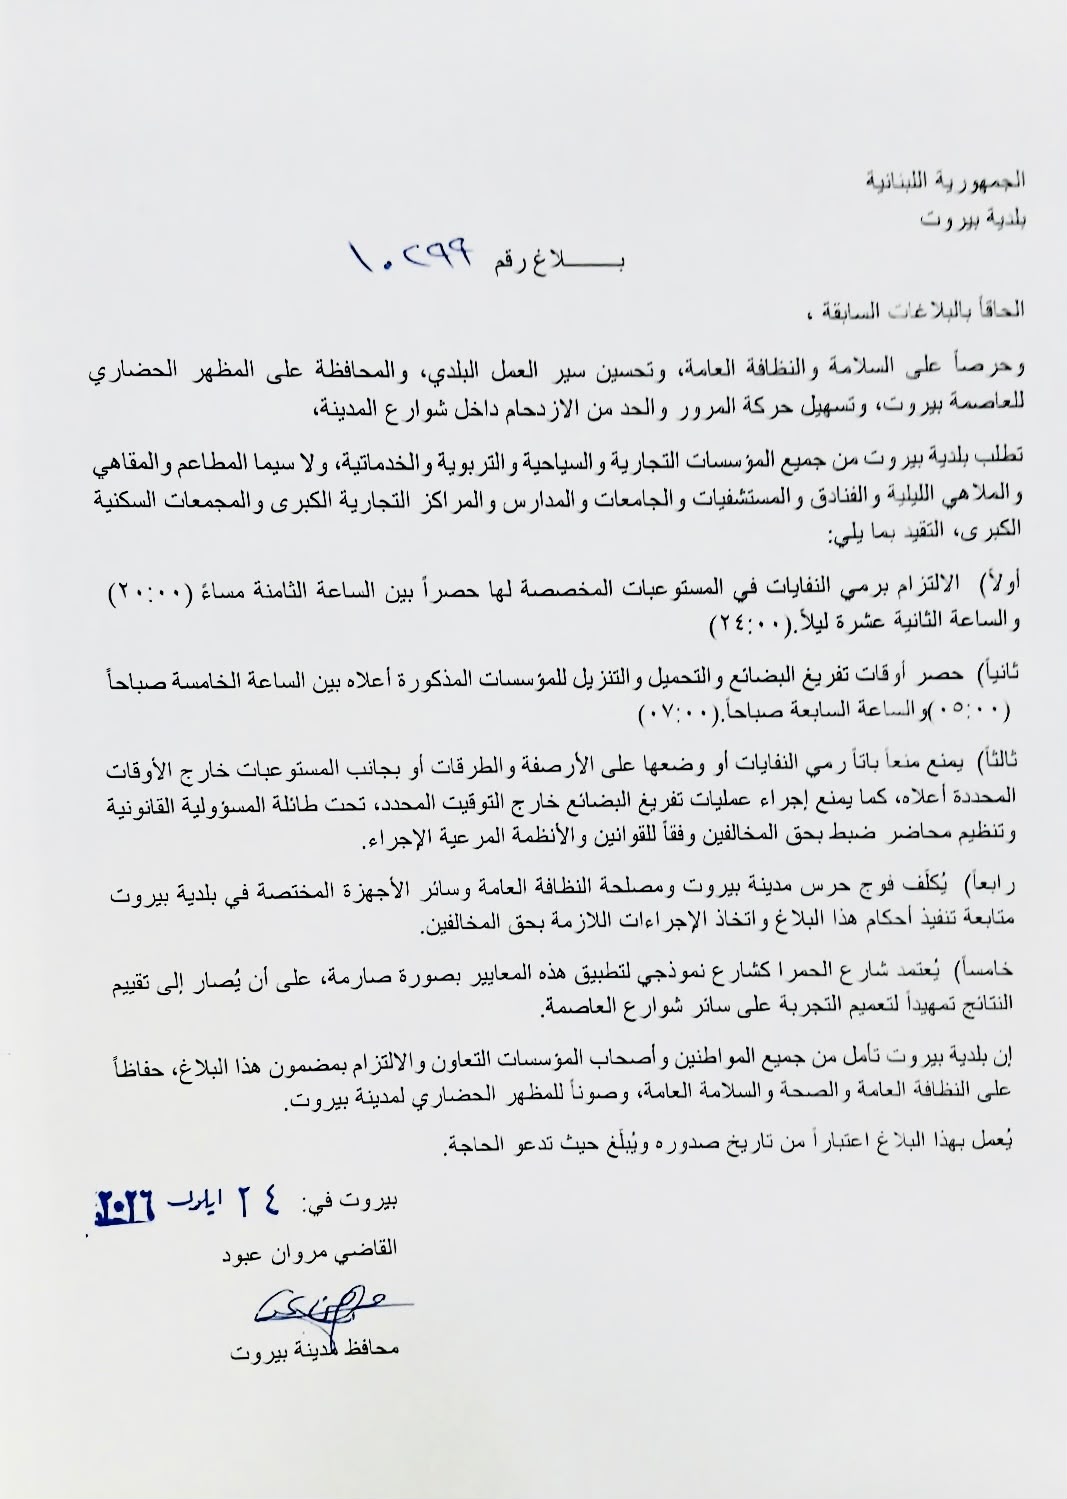 الجمهورية اللبنانية
بلدية بيروت
بـــــلاغ رقم ١٠٢٩٩
الحاقاً بالبلاغات السابقة ،
وحرصاً على السلامة والنظافة العامة، وتحسين سير العمل البلدي، والمحافظة على المظهر الحضاري
للعاصمة بيروت، وتسهيل حركة المرور والحد من الازدحام داخل شوارع المدينة،
تطلب بلدية بيروت من جميع المؤسسات التجارية والسياحية والتربوية والخدماتية، ولا سيما المطاعم والمقاهي
والملاهي الليلية والفنادق والمستشفيات والجامعات والمدارس والمراكز التجارية الكبرى والمجمعات السكنية
الكبرى، التقيد بما يلي:
أولاً) الالتزام برمي النفايات في المستوعبات المخصصة لها حصراً بين الساعة الثامنة مساءً (٢٠:٠٠)
والساعة الثانية عشرة ليلاً.(٢٤:٠٠)
ثانياً) حصر أوقات تفريغ البضائع والتحميل والتنزيل للمؤسسات المذكورة أعلاه بين الساعة الخامسة صباحاً
(٠٥:٠٠)والساعة السابعة صباحاً.(٠٧:٠٠)
ثالثاً) يمنع منعاً باتاً رمي النفايات أو وضعها على الأرصفة والطرقات أو بجانب المستوعبات خارج الأوقات
المحددة أعلاه، كما يمنع إجراء عمليات تفريغ البضائع خارج التوقيت المحدد، تحت طائلة المسؤولية القانونية
وتنظيم محاضر ضبط بحق المخالفين وفقاً للقوانين والأنظمة المرعية الإجراء.
رابعاً) يُكلَف فوج حرس مدينة بيروت ومصلحة النظافة العامة وسائر الأجهزة المختصة في بلدية بيروت
متابعة تنفيذ أحكام هذا البلاغ واتخاذ الإجراءات اللازمة بحق المخالفين.
خامساً) يُعتمد شارع الحمرا كشارع نموذجي لتطبيق هذه المعايير بصورة صارمة، على أن يُصار إلى تقييم
النتائج تمهيداً لتعميم التجربة على سائر شوارع العاصمة.
إن بلدية بيروت تأمل من جميع المواطنين وأصحاب المؤسسات التعاون والالتزام بمضمون هذا البلاغ، حفاظاً
على النظافة العامة والصحة والسلامة العامة، وصوناً للمظهر الحضاري لمدينة بيروت.
يُعمل بهذا البلاغ اعتباراً من تاريخ صدوره ويُبلّغ حيث تدعو الحاجة.
بيروت في: ٢٤ ايلول ٢٠٢٦
القاضي مروان عبود
محافظ مدينة بيروت